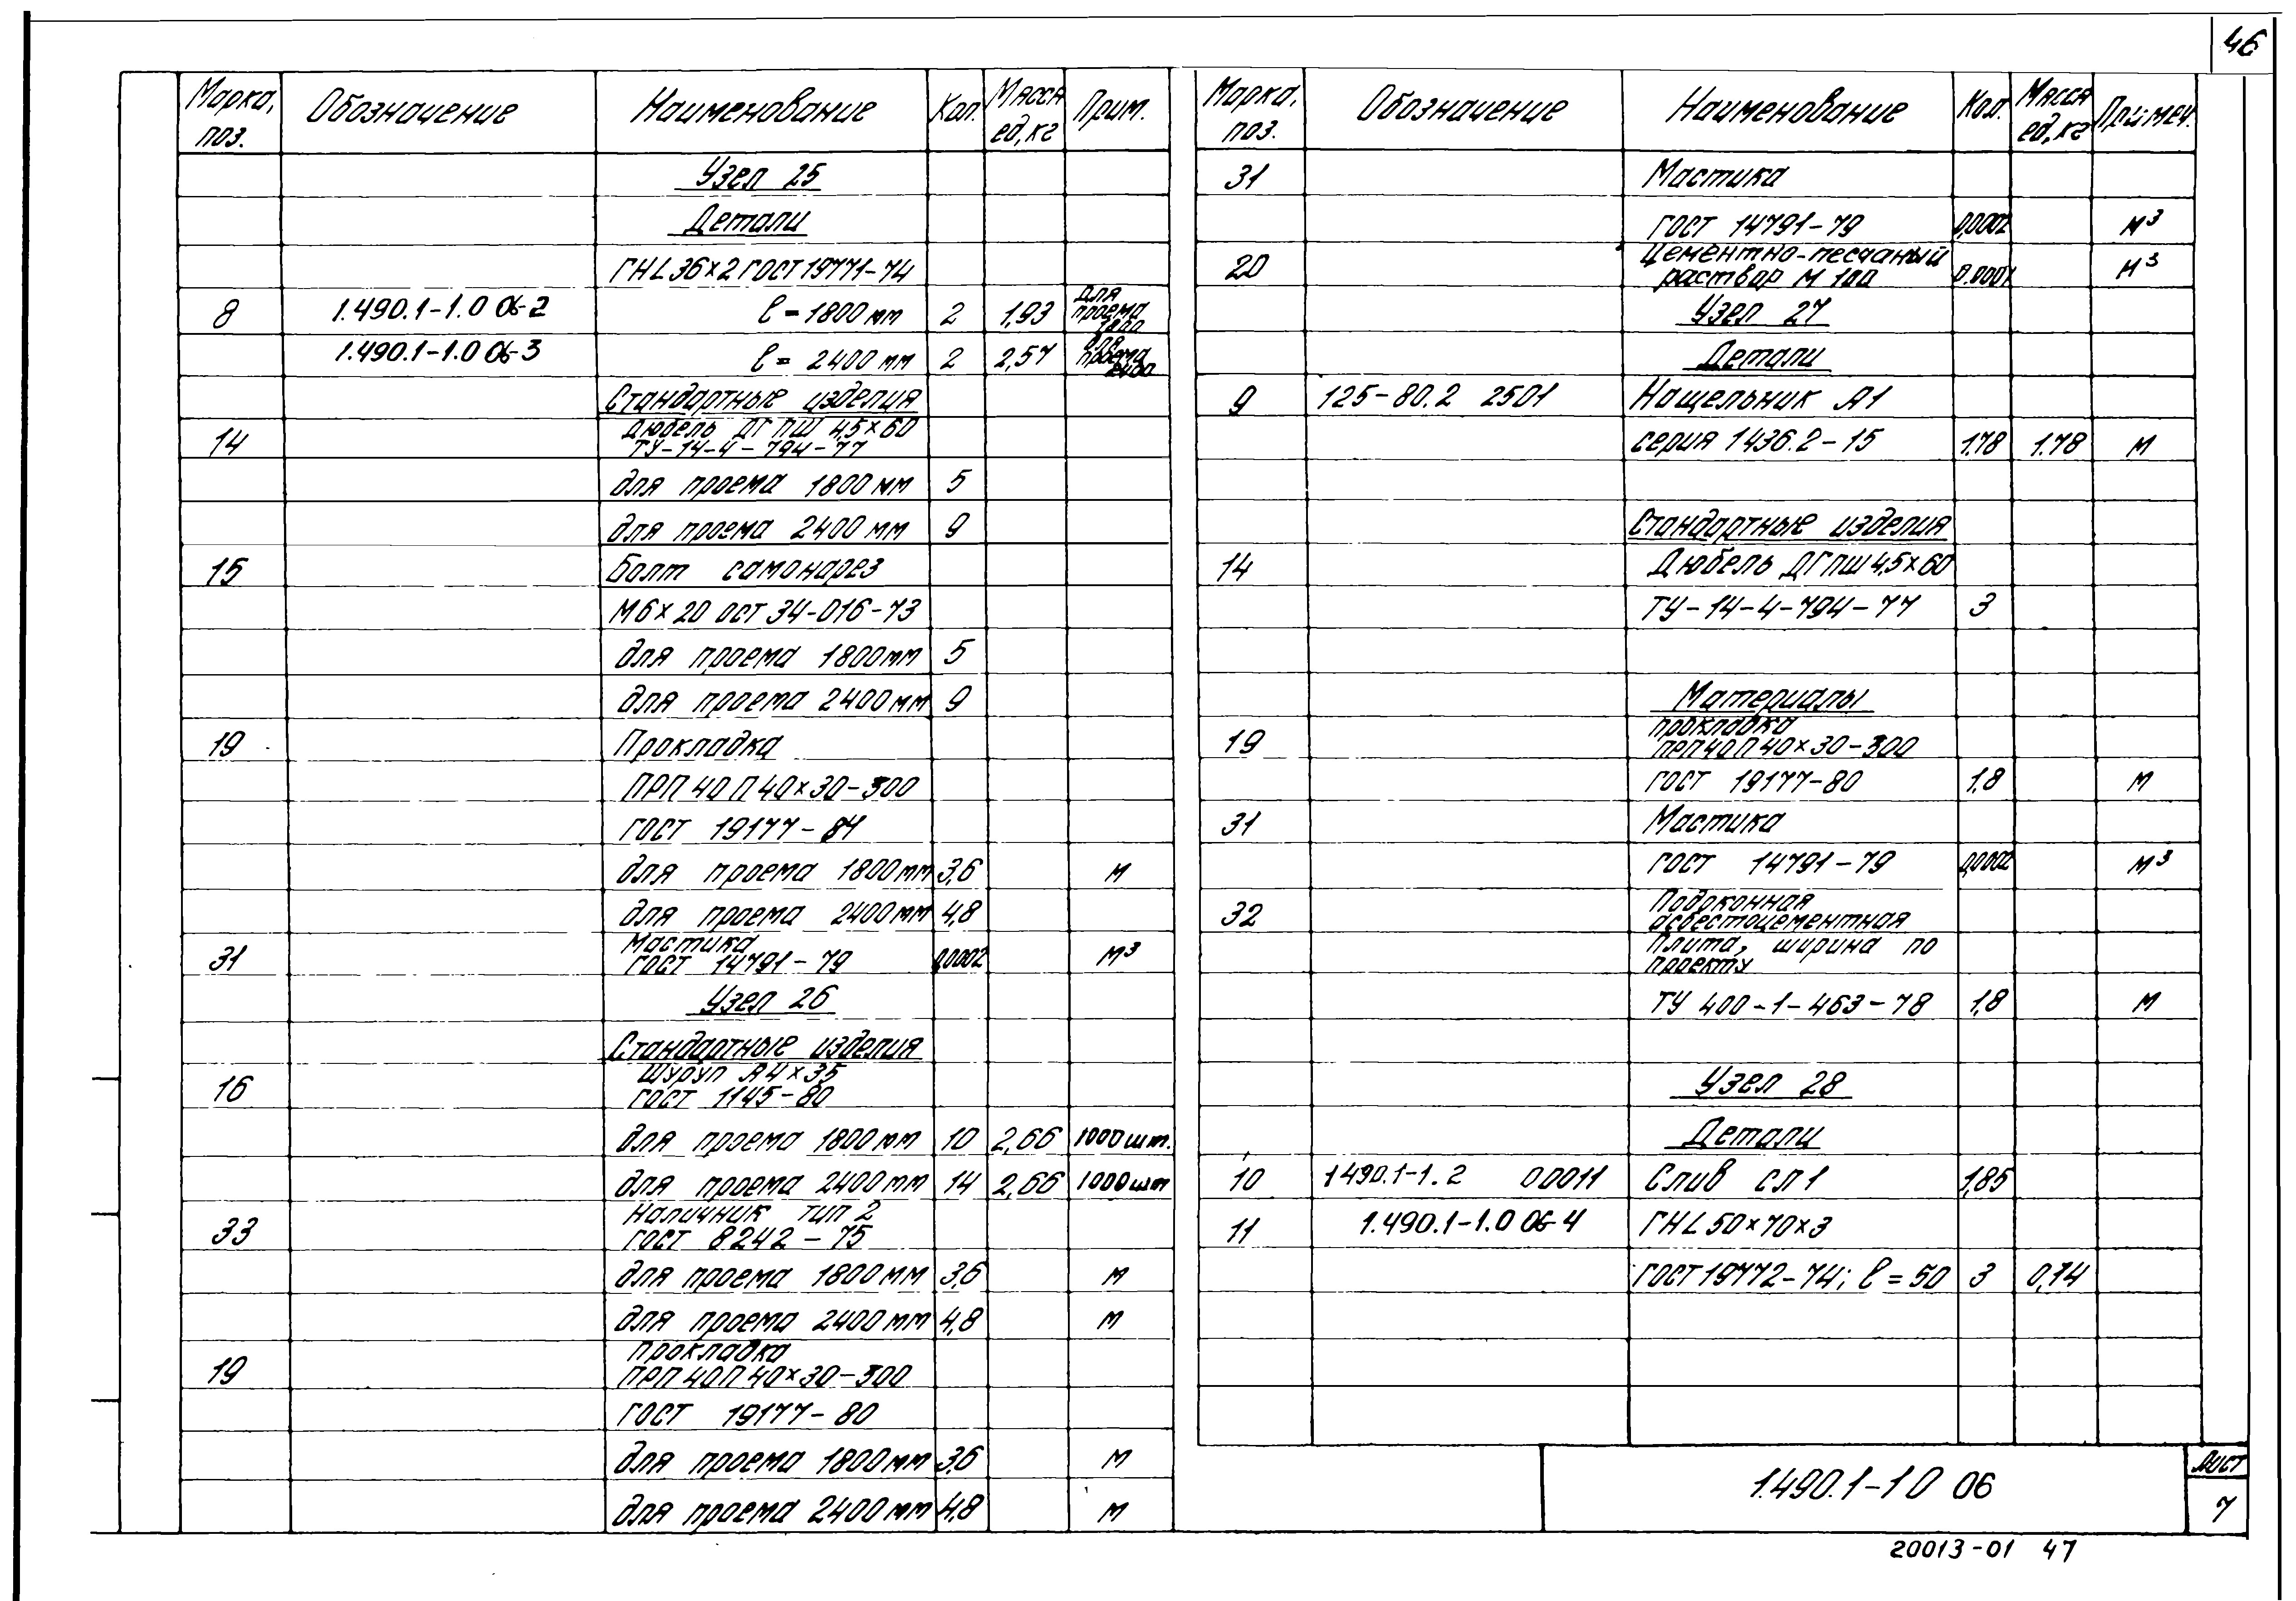 46
Марка, поз. Обозначение Наименование Кол. Масса ед, кг Прим.
Узел 25
Детали
ГНL 36×2 ГОСТ 19771-74
8 1.490.1-1.0 06-2 ℓ = 1800 мм 2 1,93 для проема 1800
1.490.1-1.0 06-3 ℓ = 2400 мм 2 2,57 для проема 2400
Стандартные изделия
14 Дюбель ДГПШ 4,5×60
ТУ-14-4-794-77
для проема 1800 мм 5
для проема 2400 мм 9
15 Болт самонарез
М6×20 ОСТ 34-016-73
для проема 1800мм 5
для проема 2400 мм 9
19 Прокладка
ПРП 40 П 40×30-300
ГОСТ 19177-81
для проема 1800 мм 3,6 м
для проема 2400 мм 4,8
31 Мастика
ГОСТ 14791-79 0,0002 м³
Узел 26
Стандартные изделия
16 Шуруп А4×35
ГОСТ 1145-80
для проема 1800 мм 10 2,66 1000 шт.
для проема 2400 мм 14 2,66 1000 шт
33 Наличник тип 2
ГОСТ 8242-75
для проема 1800 мм 3,6 м
для проема 2400 мм 4,8 м
19 Прокладка
ПРП 40 П 40×30-300
ГОСТ 19177-80
для проема 1800 мм 3,6 м
для проема 2400 мм 4,8 м
Марка, поз. Обозначение Наименование Кол. Масса ед, кг Примеч.
31 Мастика
ГОСТ 14791-79 0,0002 м³
20 Цементно-песчаный
раствор М 100 0.0001 м³
Узел 27
Детали
9 125-80.2 2501 Нащельник А1
серия 1436.2-15 1.78 1.78 м
Стандартные изделия
14 Дюбель ДГПШ 4,5×60
ТУ-14-4-794-77 3
Материалы
19 Прокладка
ПРП 40 П 40×30-300
ГОСТ 19177-80 1,8 м
31 Мастика
ГОСТ 14791-79 0,0002 м³
32 Подоконная
асбестоцементная
плита, ширина по
проекту
ТУ 400-1-463-78 1,8 м
Узел 28
Детали
10 1490.1-1.2 00011 Слив сл1 1,85
11 1.490.1-1.0 06-4 ГНL 50×70×3
ГОСТ 19772-74; ℓ = 50 3 0,14
1.490.1-1 0 06
Лист
7
20013-01 47